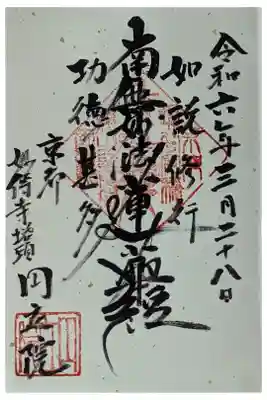 令和六年三月二十八日
如説修行
南無妙法蓮華経
功徳甚多
京都
妙傳寺塔頭 円立院